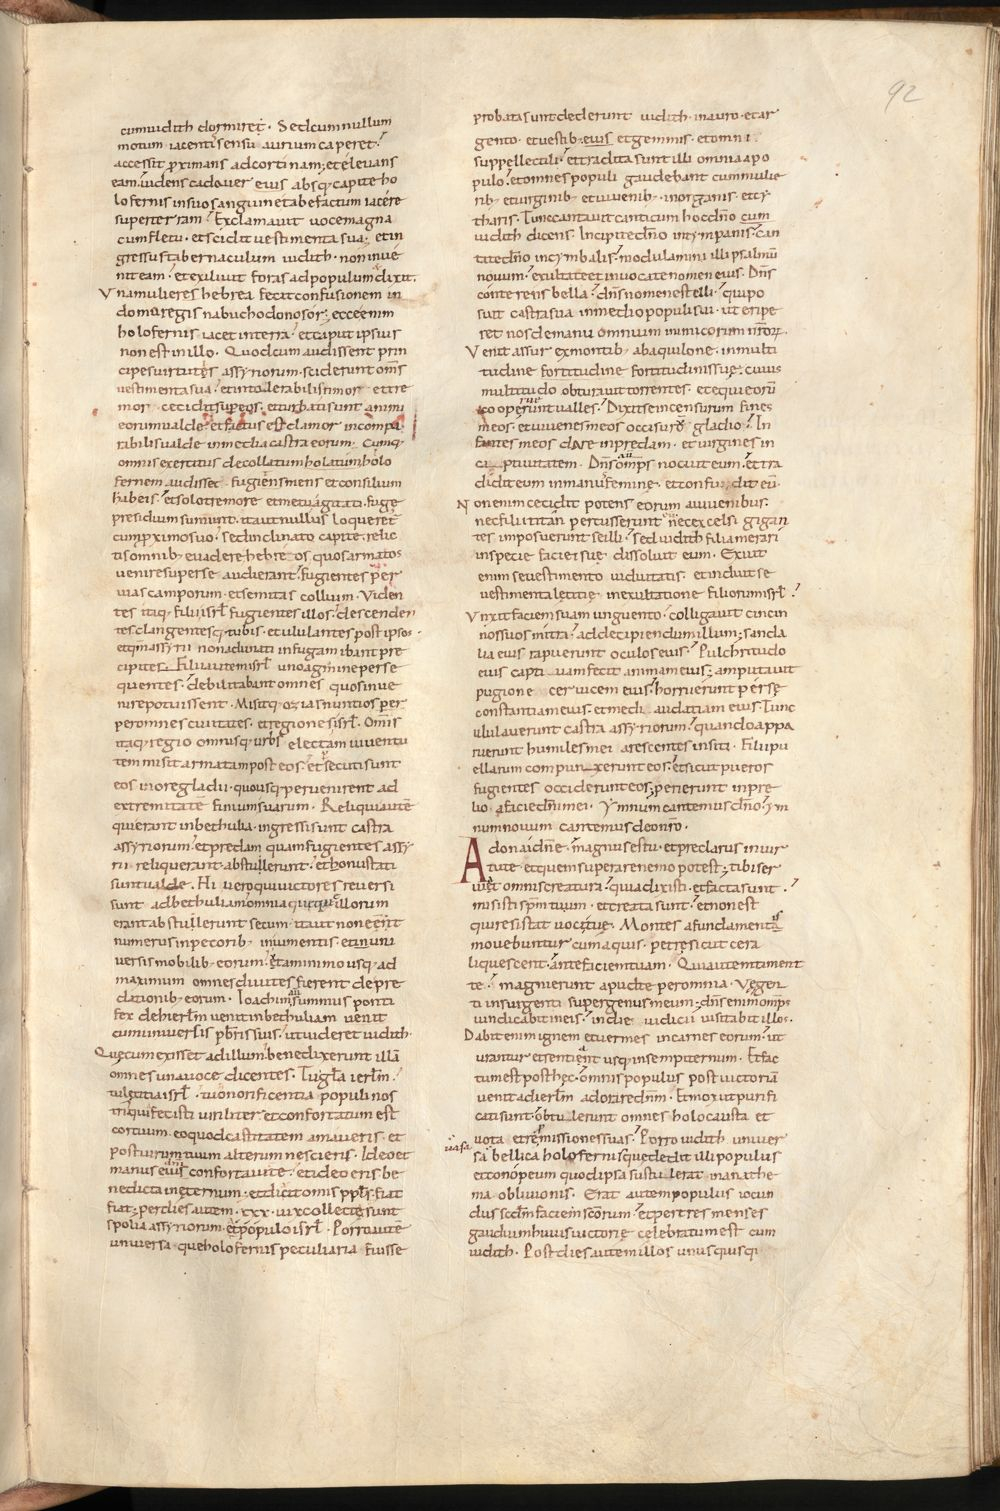 92
cum iudith dormiret. Sed cum nullum
motum iacentis sensu aurium caperet.
accessit proximans ad cortinam; et eleuans
eam. uidens cadauer eius absq; capite ho
lofernis in suo sanguine tabefactum iacere
super terram. Exclamauit uoce magna
cum fletu. et scidit uestimenta sua; et in
gressus tabernaculum iudith. non inue
nit eam. et exiliuit foras ad populum dixit.
Vna mulier es hebrea fecit confusionem in
domo regis nabuchodonosor; ecce enim
holofernis iacet in terra. et caput ipsius
non est in illo. Quod cum audissent prin
cipes uirtutis assyriorum. sciderunt oms̄
uestimenta sua. et intolerabilis timor et tre
mor cecidit super eos. et turbati sunt animi
eorum ualde. et factus est clamor incompa
rabilis ualde in media castra eorum. Cumq;
omnis exercitus decollatum holatum holo
fernem audisset. fugiens mens et consilium
habeis. et solo tremore et metu agitati. fuge
presidium sumunt. ita ut nullus loqueret̄
cum proximo suo. sed inclinato capite. relic
tis omnib; euadere hebreos quos armatos
uenire super se audierant. fugientes per
uias camporum. et semitas collium. Viden
tes itaq; filii isrl̄ fugientes illos. descender
tes clangentesq; tubis. et ululantes post ipsos.
et qm̄ assyrii non adunati in fugam ibant pre
cipites. Filii autem isrl̄ uno agmine perse
quentes. debilitabant omnes quos inue
nire potuissent. Misitq; ozias nuntios per
per omnes ciuitates. et regiones isrl̄. Omis̄
itaq; regio omnisq; urbs electam iuuentu
tem misit armatam post eos. et secuti sunt
eos in ore gladii. quousq; peruenirent ad
extremitatē finium suarum. Reliqui autē
qui erant in bethulia. ingressi sunt castra
assyriorum. et predam quam fugientes assy
rii reliquerant. abstullerunt. et honustati
sunt ualde. Hi uero qui uictores reuersi
sunt ad bethuliam. omnia queque illorum
erant abstullerunt secum. ita ut non eēnt
numerus in pecorib; iniumentis. et in uni
uersis mobilib; eorum. et a minimo usq; ad
maximum omnes diuites fierent de pre
dationib; eorum. Ioachim autē summus ponti
fex de hierlm̄ uenit in bethuliam uenit
cum uniuersis pbr̄is suis. ut uideret iudith.
Que cum exisset ad illum. benedixerunt illā
omnes una uoce dicentes. Tu gla ierlm̄.
tu letitia isrl̄. tu onorificentia populi nos
tri qui fecisti uiriliter et confortatum est
cor tuum. eo quod castitatem amaueris. et
post uirum tuum alterum nescieris. Ideo et
manus dn̄i confortauit te. et ideo eris be
nedicta in eternum. et dicit omis ppls̄. fiat
fiat. per dies autem. xxx. uix collecte sunt
spolia assyriorum. et populo isrl̄. Porro autē
uniuersa que holofernis peculiaria fuisse
probata sunt dederunt iudith. in auro. et ar
gento. et uestib; eius et gemmis. et omni.
suppellectili. et tradita sunt illi omnia a po
pulo. et omnes populi gaudebant cum mulie
rib; et uirginib; et iuuenib;. in organis. et cy
tharis. Tunc cantauit canticum hoc dn̄o cum
iudith dicens. Incipite dn̄o in tympanis. can
tite dn̄o in cymbalis. modulamini illi psalmū
nouum. exultate et inuocate nomen eius. Dn̄s
conterens bella. dn̄s nomen est elli. qui po
suit castra sua in medio populi sui. ut eripe
set nos de manu omnium inimicorum nr̄orum.
Venit assur ex montib; ab aquilone. in multi
tudine fortitudine fortitudinis sue; cuius
multitudo obturauit torrentes. et equi eorū
cooperuerunt ualles. Dixit se incensurum fines
meos. et iuuenes meos occisurō gladio. In
fantes meos dare in predam. et uirgines in
captiuitatem. Dn̄s autem omp̄s nocuit eum. et tra
didit eum in manu femine. et confundit eū.
Non enim cecidit potens eorum a iuuenibus.
nec filii titan percusserunt eum. nec excelsi gigan
tes imposuerunt se illi. sed iudith filia merari
in specie faciei sue dissoluit eum. Exiuit
enim se uestimento uiduitatis. et induit se
uestimenta letitie in exultatione filiorum isrl̄.
Vnxit faciem suam unguento. colligauit cincin
nos suos mitra. ad decipiendum illum; sanda
lia eius rapuerunt oculos eius. Pulchritudo
eius captiuam fecit animam eius; amputauit
pugione ceruicem eius. horruerunt perse
constantiam eius. et medi audatiam eius. Tunc
ululauerunt castra assyriorum. quando appa
ruerunt humiles mei arescentes in siti. Filii pu
ellarum compunxerunt eos. et sicut pueros
fugientes occiderunt eos; perierunt in pre
lio a facie dn̄i mei. Ymnum cantemus dn̄o. ym
num nouum cantemus deo nr̄o.
Adonai dn̄e. magnus es tu. et preclarus in uir
tute et quem superare nemo potest; tibi ser
uiet omnis creatura. quia dixisti. et facta sunt.
misisti spm̄ tuum. et creata sunt. et non est
qui resistat uoci tue. Montes a fundamentis
mouebuntur cum aquis. petre sicut cera
liquescent. ante faciem tuam. Qui autem timent
te. magni erunt apud te per omnia. Ve gen
ti insurgenti super genus meum; dn̄s enim omp̄s
uindicabit in eis. in die iudicii uisitabit illos.
Dabit enim ignem et uermes in carnes eorum. ut
urantur et sentiant usq; in sempiternum. Et fac
tum est post hec. omnis populus post uictoriā
uenit ad ierlm̄ adorare dn̄m. Et mox ut purifi
cati sunt. obtulerunt omnes holocausta et
uota et repromissiones suas. Porro iudith uniuer
uasa
sa bellica holofernis que dedit illi populus
et conopeum quod ipsa sustulerat in anathe
ma obliuionis. Erat autem populus iocun
dus scdm̄ faciem scōrum. et per tres menses
gaudium huius uictorie celebratum est cum
iudith. Post dies autem illos unusquisq;